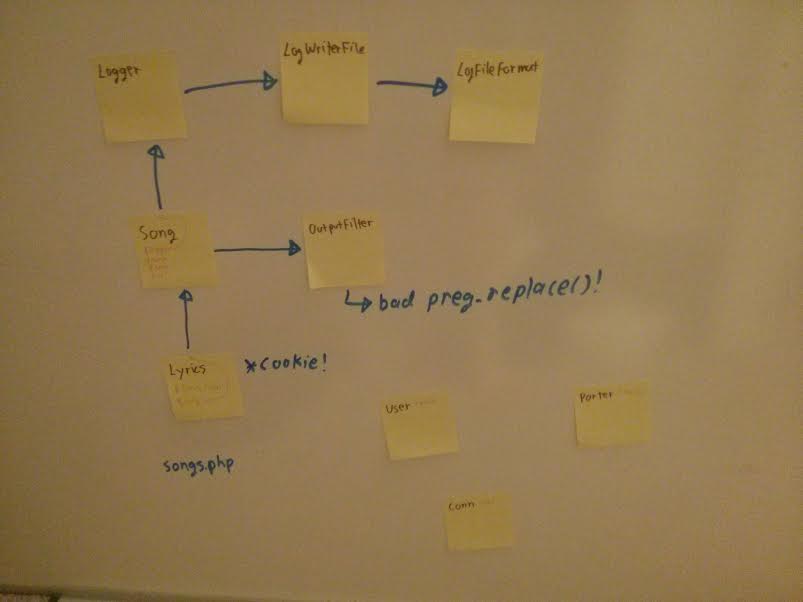 Logger
LogWriterFile
LogFileFormat
Song
OutputFilter
↳ bad preg_replace()!
Lyrics
*cookie!
User
Porter
songs.php
Conn